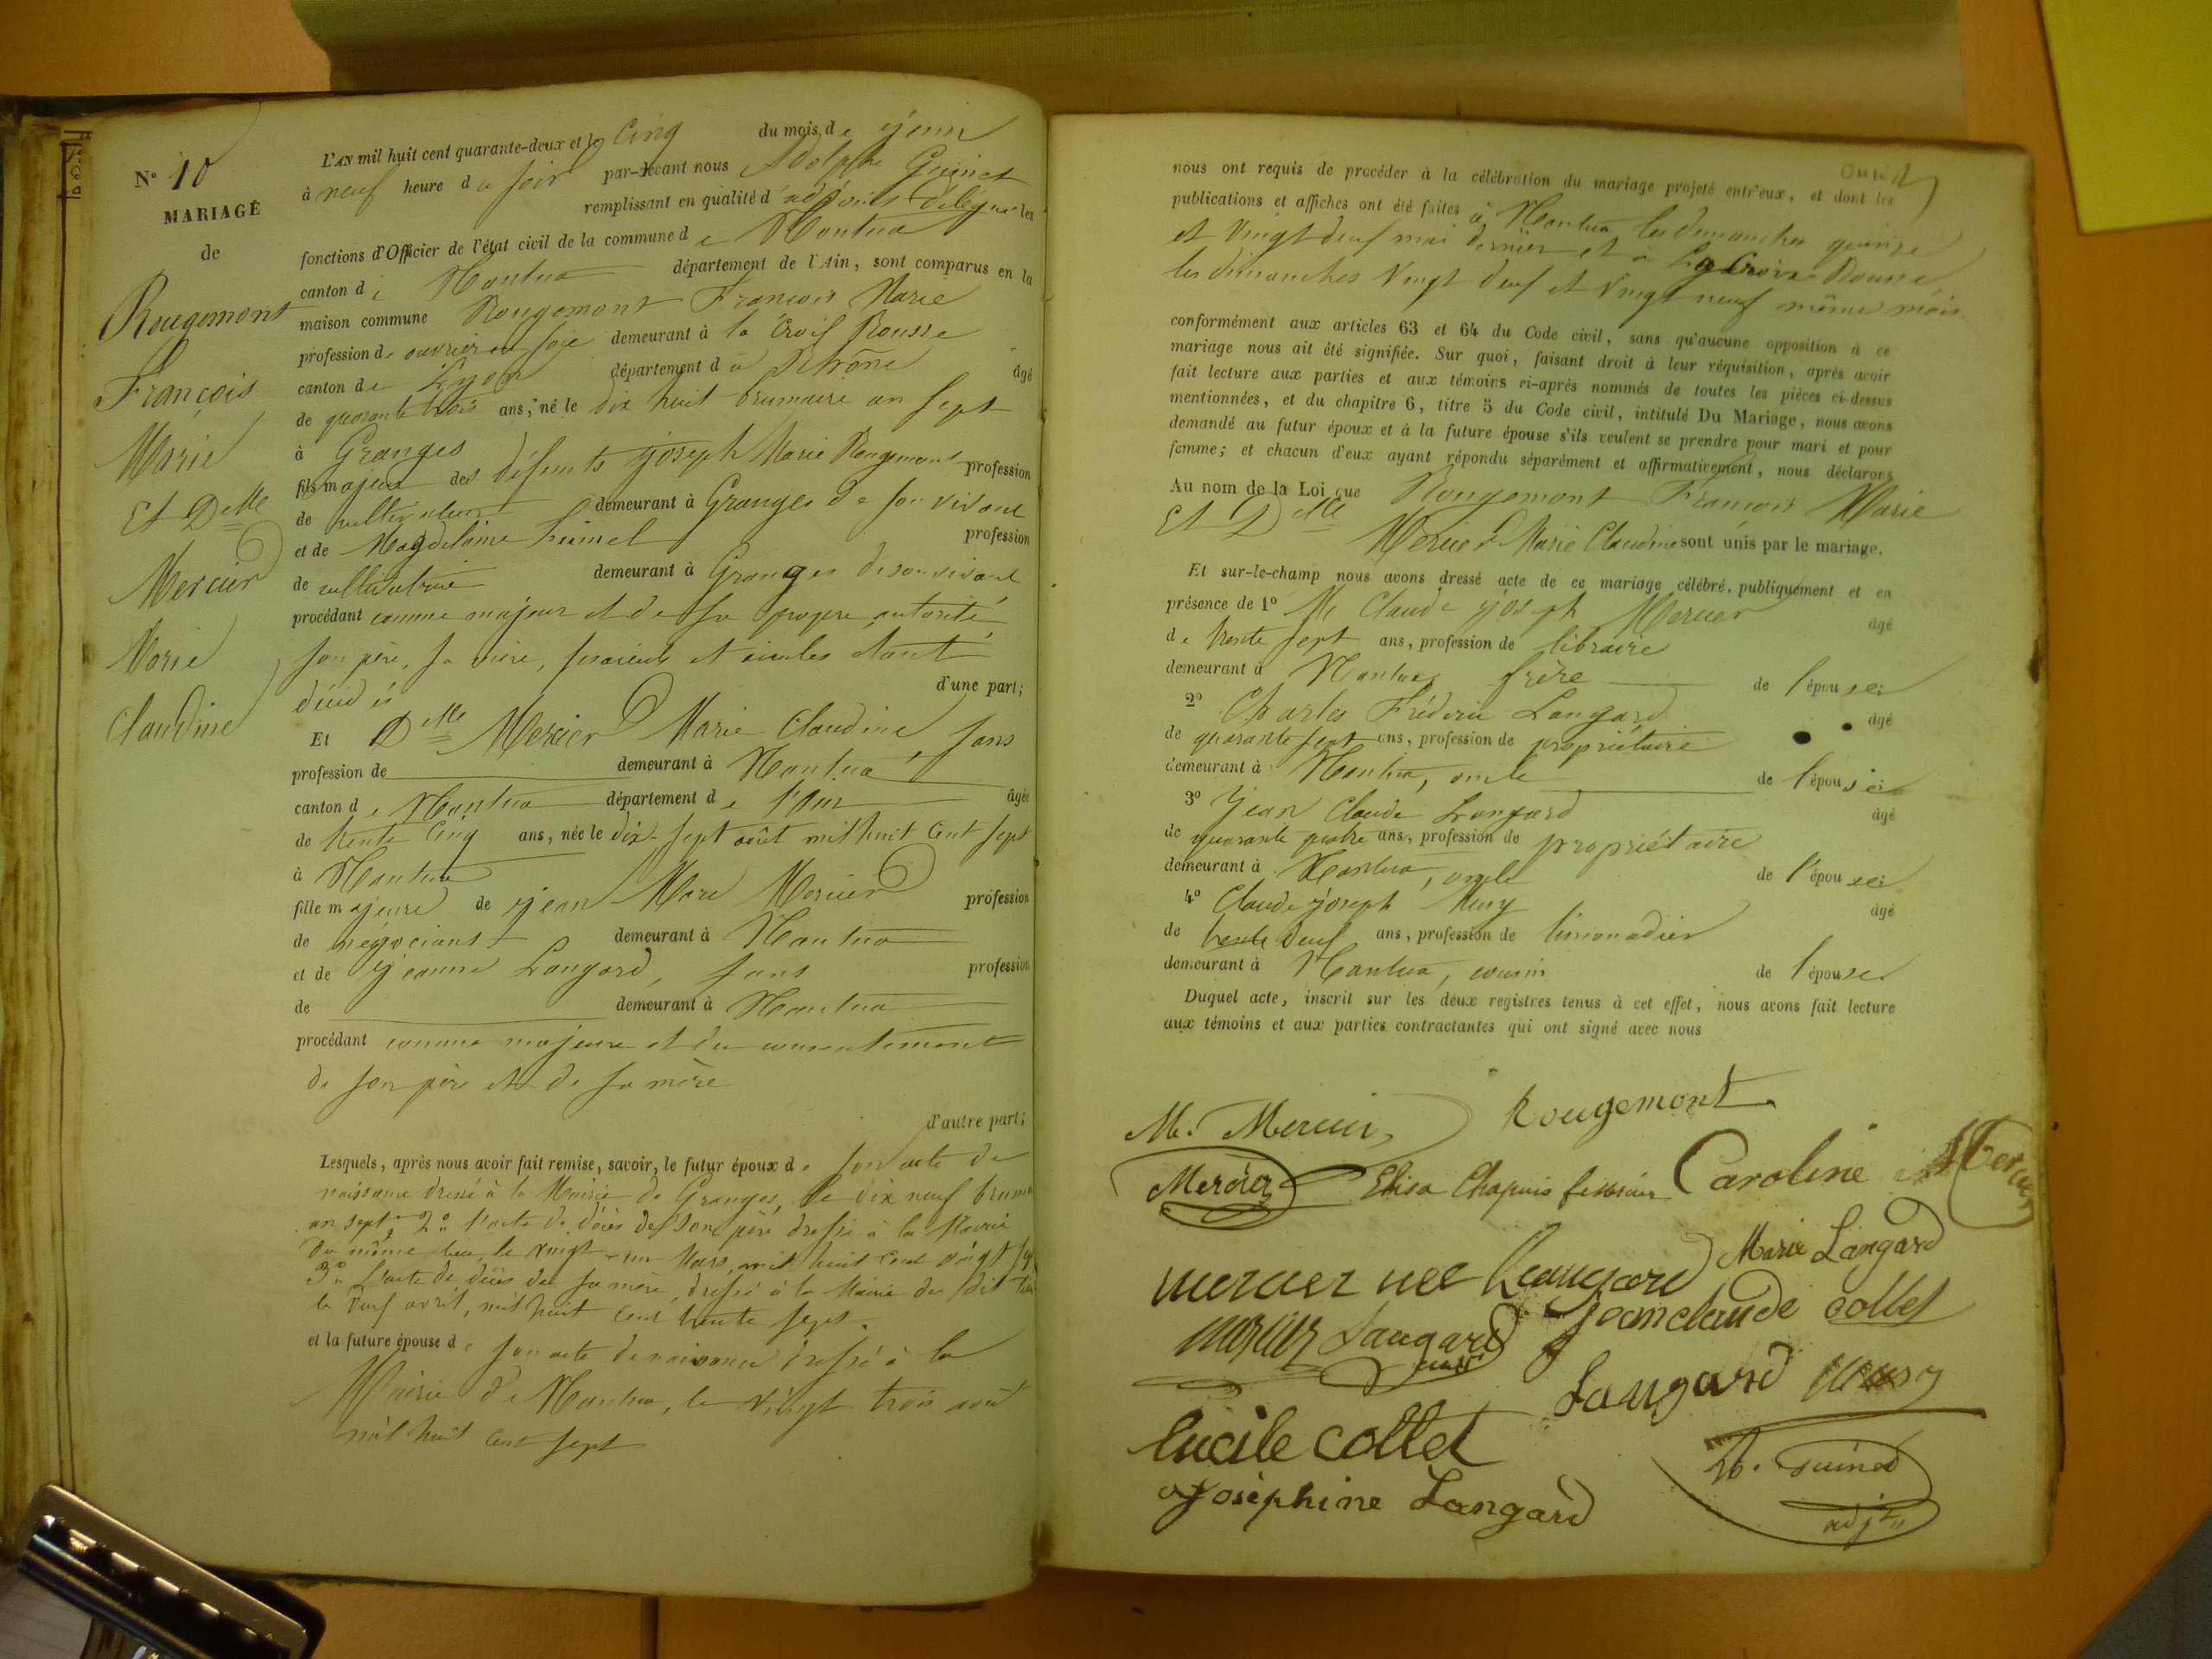 N° 10
MARIAGE
de
Rougemont
François
Marie
Et Dlle
Mercier
Marie
Claudine
L'AN mil huit cent quarante-deux et le Cinq du mois de juin
à neuf heure du soir par-devant nous Adolphe Guinet
remplissant en qualité d'adjoint délégué les
fonctions d'Officier de l'état civil de la commune de Nantua
canton de Nantua département de l'Ain, sont comparus en la
maison commune Rougemont François Marie
profession de ouvrier en soie demeurant à la Croix Rousse
canton de Lyon département du Rhône âgé
de quarante trois ans, né le dix huit brumaire an sept
à Granges
fils majeur des défunts joseph Marie Rougemont profession
de cultivateur demeurant à Granges de son vivant
et de Magdelaine profession
de cultivatrice demeurant à Granges de son vivant
procédant comme majeur et de sa propre autorité,
son père, sa mère, ses aieuls et aieules étant
décédés d'une part;
Et Dlle Mercier Marie Claudine, sans
profession de demeurant à Nantua
canton de Nantua département de l'Ain âgée
de trente cinq ans, née le dix-sept août mil huit cent sept
à Nantua
fille majeure de jean Marc Mercier profession
de négociant demeurant à Nantua
et de jeanne Langard, sans profession
de demeurant à Nantua
procédant comme majeure et du consentement
de son père et de sa mère
d'autre part;
Lesquels, après nous avoir fait remise, savoir, le futur époux de son acte de
naissance dressé à la Mairie de Granges, le dix neuf brum
an sept, 2° l'acte de décès de son père dressé à la Mairie
du même lieu le vingt-un Mars, mil huit cent vingt
3° L'acte de décès de sa mère, dressé à la Mairie du dit lieu
le neuf avril, mil huit cent trente sept.
et la future épouse de son acte de naissance dressé à la
Mairie de Nantua, le vingt trois août
mil huit cent sept
nous ont requis de procéder à la célébration du mariage projeté entr'eux, et dont les
publications et affiches ont été faites à Nantua les dimanches quinze
et Vingt deux mai dernier et à La Croix Rousse,
les dimanches Vingt deux et vingt neuf même mois.
conformément aux articles 63 et 64 du Code civil, sans qu'aucune opposition à ce
mariage nous ait été signifiée. Sur quoi, faisant droit à leur réquisition, après avoir
fait lecture aux parties et aux témoins ci-après nommés de toutes les pièces ci-dessus
mentionnées, et du chapitre 6, titre 5 du Code civil, intitulé Du Mariage, nous avons
demandé au futur époux et à la future épouse s'ils veulent se prendre pour mari et pour
femme; et chacun d'eux ayant répondu séparément et affirmativement, nous déclarons
Au nom de la Loi que Rougemont François Marie
Et Dlle Mercier Marie Claudine sont unis par le mariage.
Et sur-le-champ nous avons dressé acte de ce mariage célébré publiquement et en
présence de 1° Mr Claude joseph Mercier âgé
de trente sept ans, profession de libraire
demeurant à Nantua frère de l'épouse;
2° Charles Fréderic Langard âgé
de quarante sept ans, profession de propriétaire
demeurant à Nantua, oncle de l'épouse;
3° Jean Claude Langard âgé
de quarante quatre ans, profession de propriétaire
demeurant à Nantua, oncle de l'épouse;
4° Claude joseph Musy âgé
de trente deux ans, profession de limonadier
demeurant à Nantua, cousin de l'épouse
Duquel acte, inscrit sur les deux registres tenus à cet effet, nous avons fait lecture
aux témoins et aux parties contractantes qui ont signé avec nous
M. Mercier Rougemont
Mercier Elisa Chapuis Caroline Mercier
mercier nee Langard Marie Langard
mercier Langard jeanclaude collet
Langard Musy
lucile collet
josephine Langard
Guinet
adjt